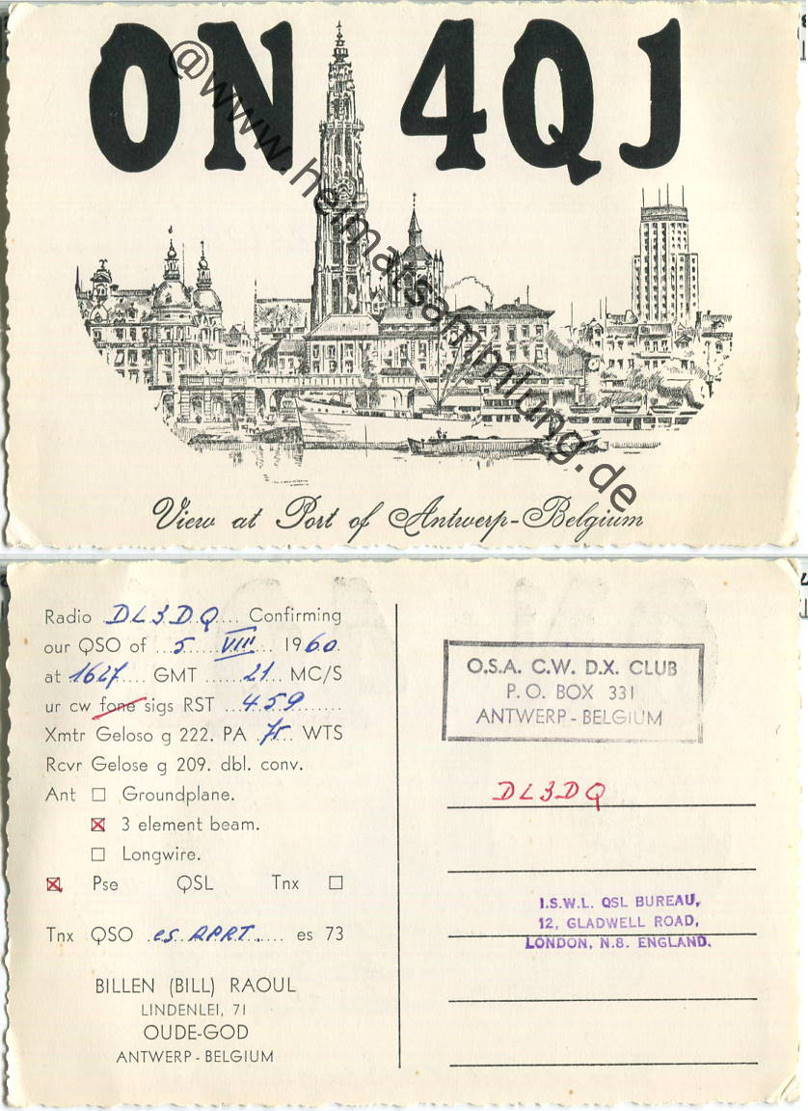 ON 4QJ
@www.heimatsammlung.de
View at Port of Antwerp-Belgium
Radio DL3DQ.... Confirming
our QSO of ..5....VIII... 1960.
at 1627.... GMT ......21.. MC/S
ur cw fone sigs RST ..459.........
Xmtr Geloso g 222. PA .75... WTS
Rcvr Gelose g 209. dbl. conv.
Ant ☐ Groundplane.
☒ 3 element beam.
☐ Longwire.
☒ Pse QSL Tnx ☐
Tnx QSO .es APRT...... es 73
BILLEN (BILL) RAOUL
LINDENLEI, 71
OUDE-GOD
ANTWERP - BELGIUM
O.S.A. C.W. D.X. CLUB
P.O. BOX 331
ANTWERP - BELGIUM
DL3DQ
I.S.W.L. QSL BUREAU,
12, GLADWELL ROAD,
LONDON, N.8. ENGLAND.